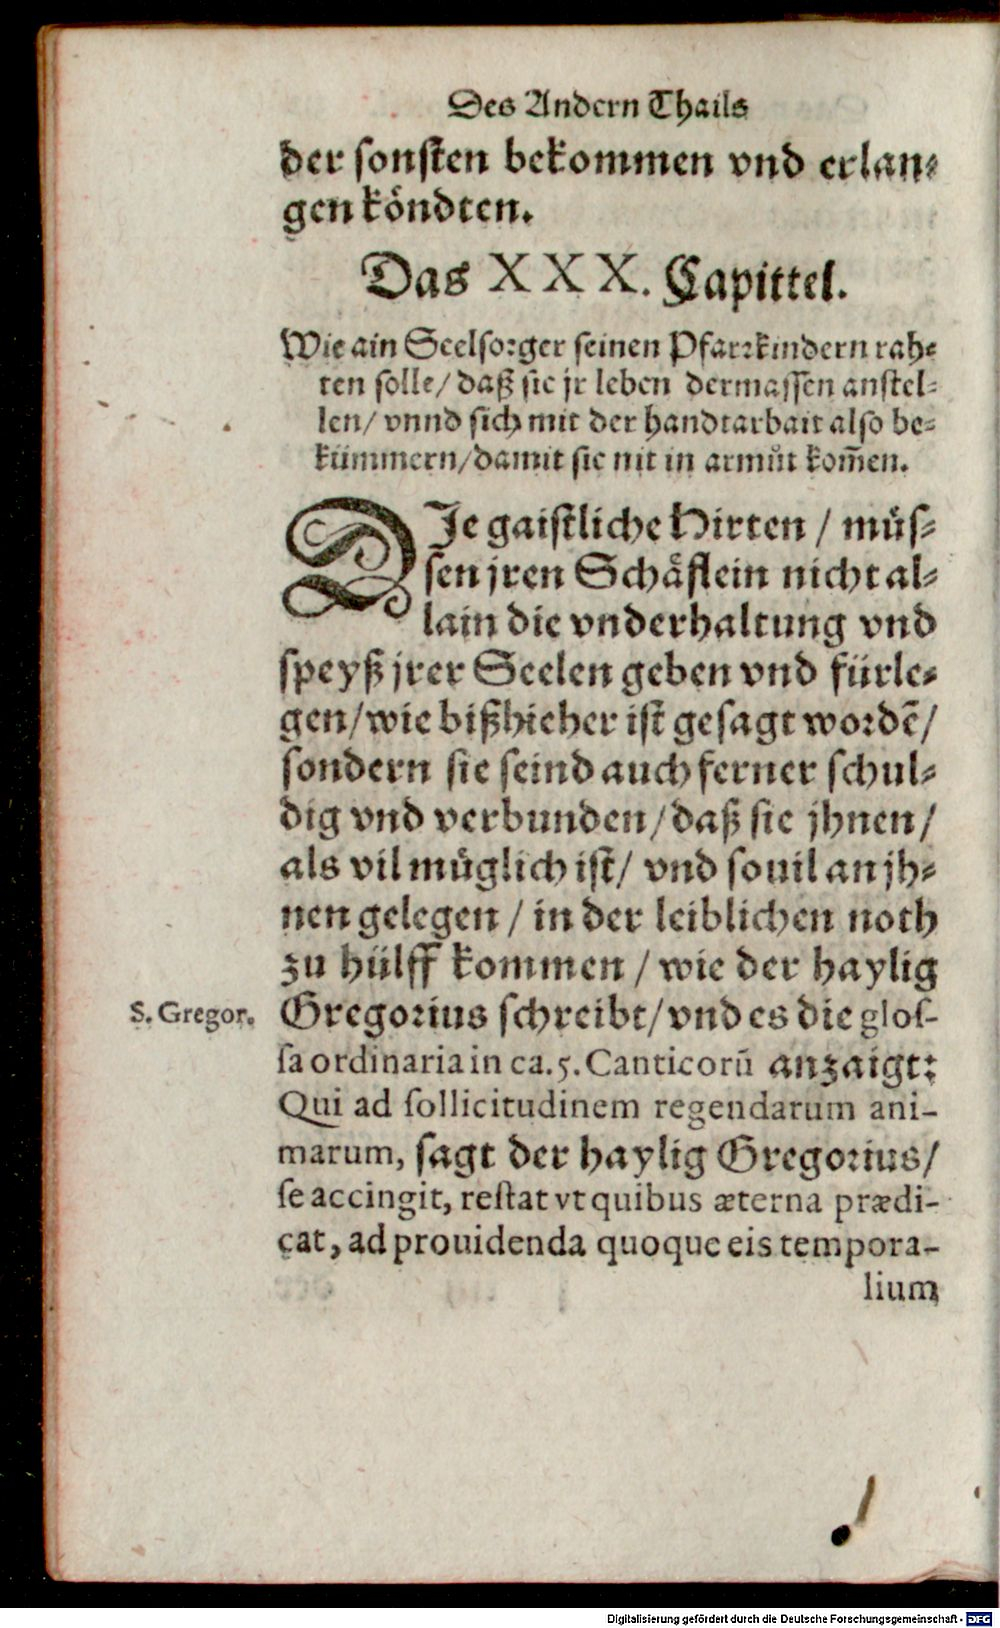 Des Andern Thails
der sonsten bekommen vnd erlan⸗
gen koͤndten.
Das XXX. Capittel.
Wie ain Seelsorger seinen Pfarrkindern rah⸗
ten solle/ daß sie jr leben dermassen anstel⸗
len/ vnnd sich mit der handtarbait also be⸗
kümmern/ damit sie nit in armůt kom̃en.
DJe gaistliche Hirten / müs⸗
sen jren Schäflein nicht al⸗
lain die vnderhaltung vnd
speyß jrer Seelen geben vnd fürle⸗
gen/ wie bißhieher ist gesagt wordẽ/
sondern sie seind auch ferner schul⸗
dig vnd verbunden/ daß sie jhnen/
als vil müglich ist/ vnd souil an jh⸗
nen gelegen / in der leiblichen noth
zu hülff kommen / wie der haylig
S. Gregor. Gregorius schreibt/ vnd es die glos-
sa ordinaria in ca. 5. Canticorũ anzaigt:
Qui ad sollicitudinem regendarum ani-
marum, sagt der haylig Gregorius/
se accingit, restat vt quibus æterna prædi-
cat, ad prouidenda quoque eis tempora-
lium
Digitalisierung gefördert durch die Deutsche Forschungsgemeinschaft - DFG